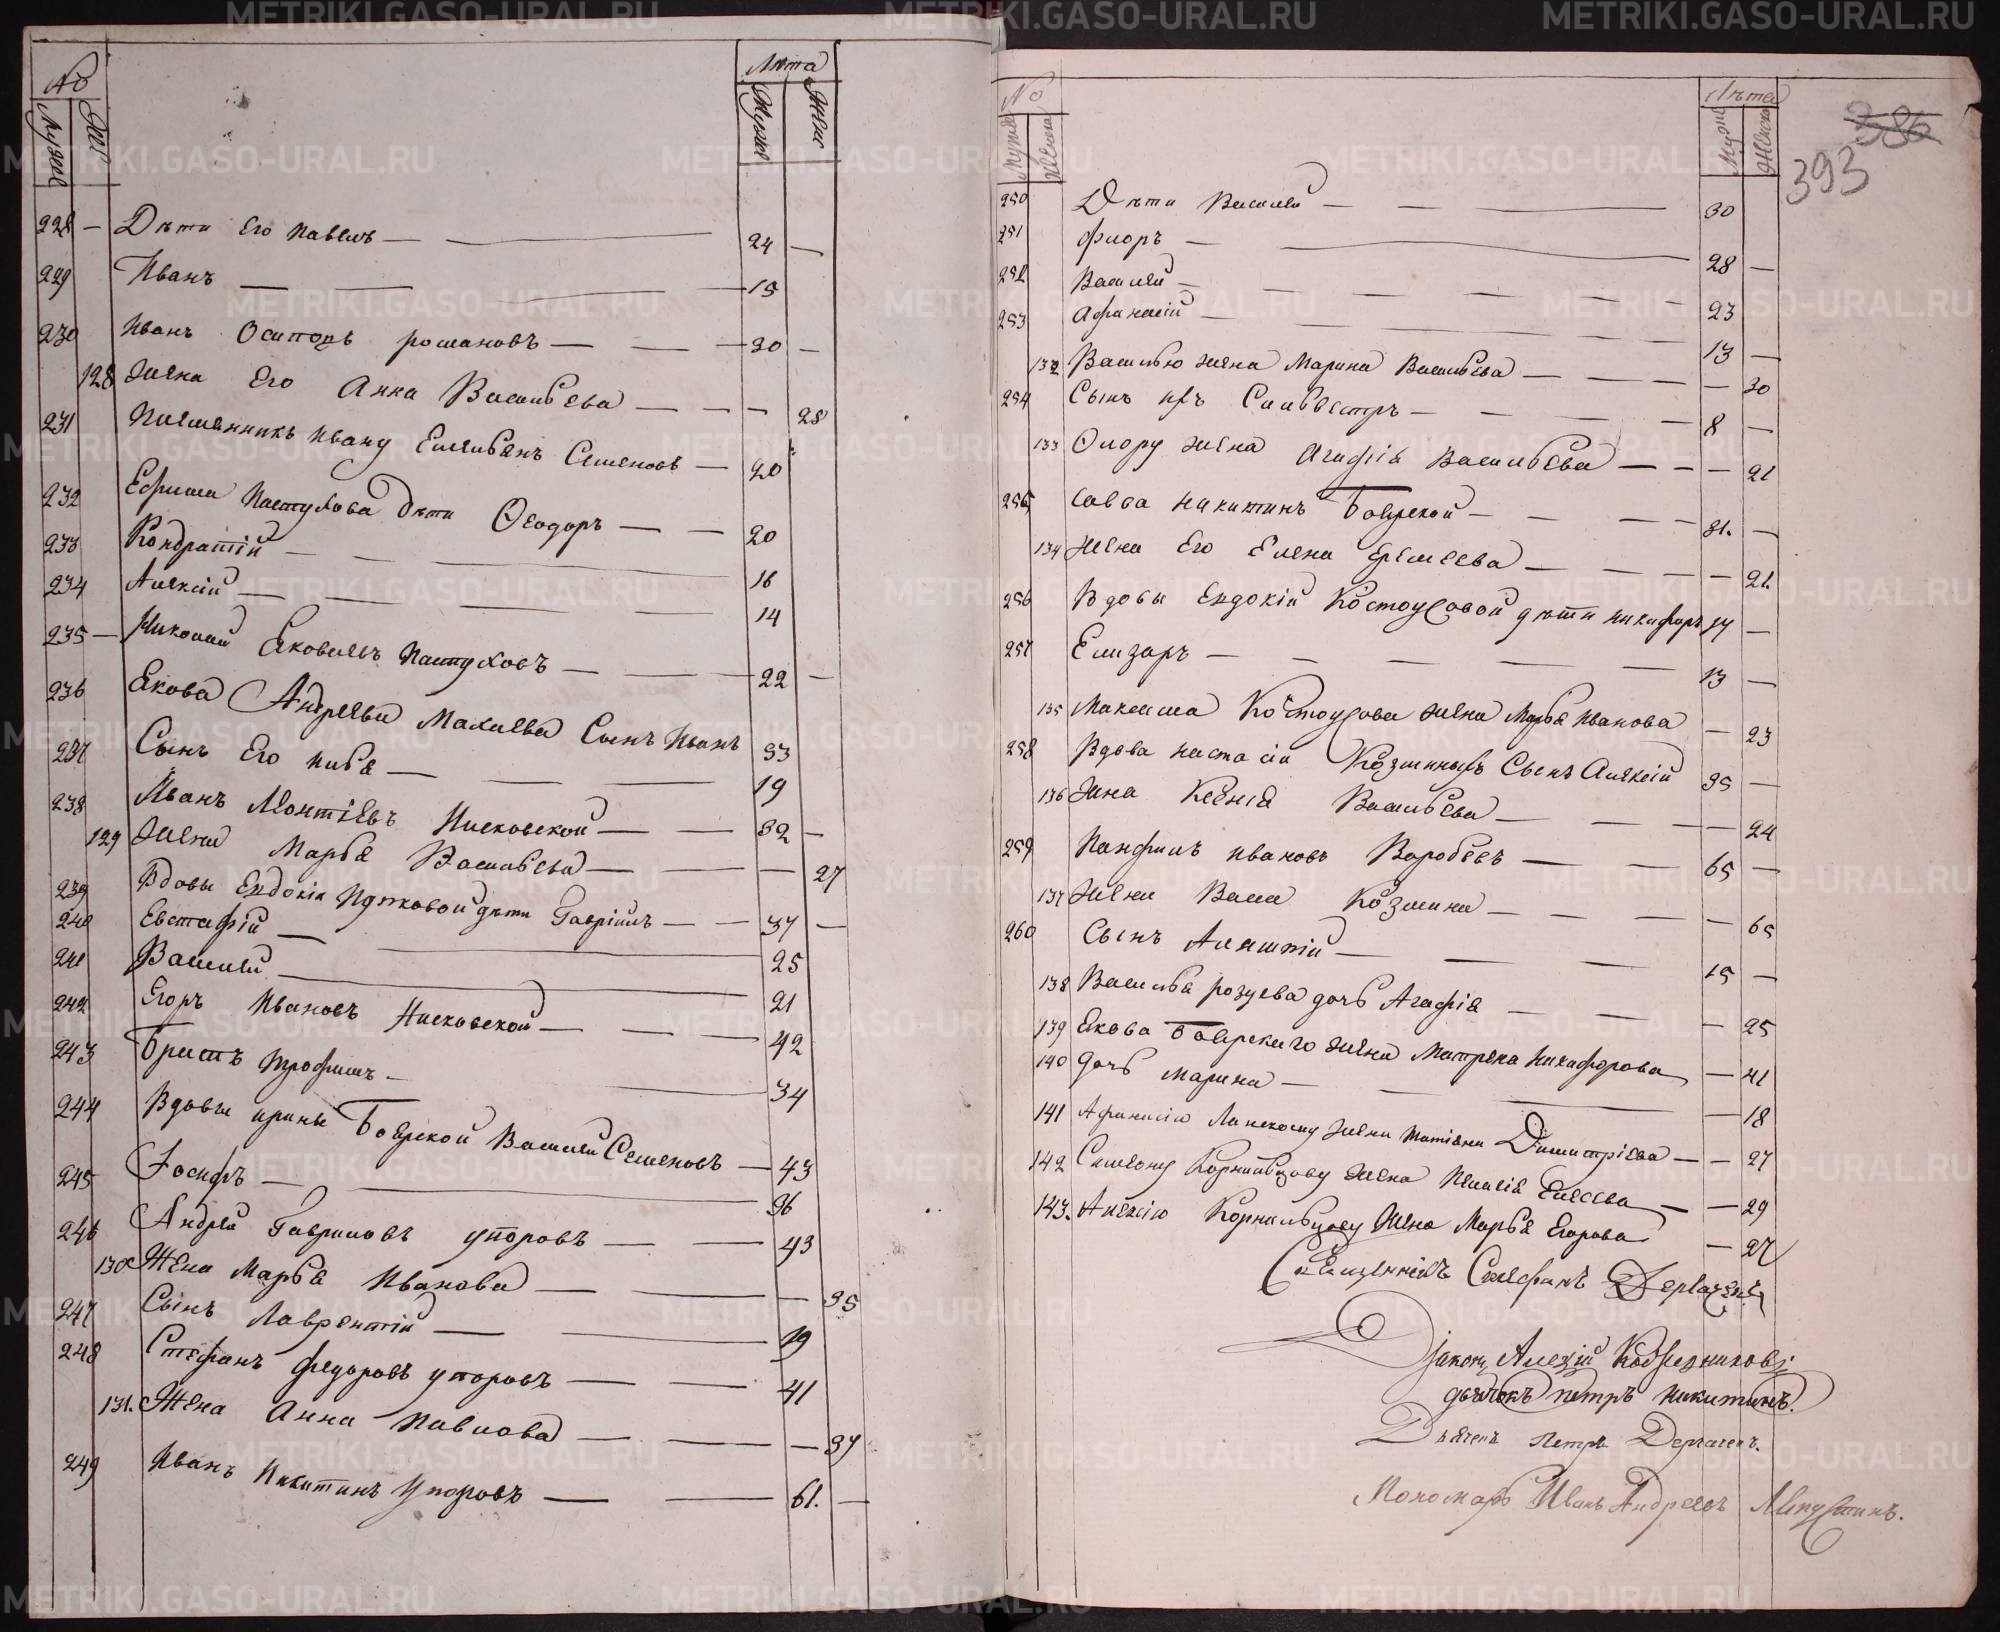 METRIKI.GASO-URAL.RU
№ Лѣта
Мужес Жен Мужес Женс
228 — Дѣти Его Павелъ — 24 —
229 Иванъ — 15
230 Иванъ Осиповъ романовъ — 30 —
128 жена Его Анна Васильева — 28
231 Племянникъ Ивану Емельянъ Семеновъ — 20
232 Ефима Пастухова дѣти Ѳеодоръ — 20
233 Кондратій — 16
234 Алексій — 14
235 — Николай Яковлевъ Пастуховъ — 22 —
236 Якова Андреева Махнева Сынъ Иванъ 33
237 Сынъ Его Илья — 19
238 Иванъ Леонтіевъ — 32 —
129 жена Марья Васильева — 27
239 Вдовы Евдокіи дѣти Гавріилъ — 37 —
240 Евстафій — 25
241 Василей — 21
242 Егоръ Ивановъ — 42
243 Братъ трофимъ — 34
244 Вдовы ирины Боярской Василей Семеновъ — 43
245 Іосифъ — 36
246 Андрей Гавриловъ упоровъ — 43
130 Жена Марья Иванова — 35
247 Сынъ Лаврентій — 19
248 Стефанъ федоровъ упоровъ — 41
131. Жена Анна Павлова — 37
249 Иванъ Никитинъ Упоровъ — 61. —
№ Лѣта
Мужес Женск Мужс Женск
386
393
250 Дѣти Василей — 30
251 флоръ — 28 —
252 Василей — 23
253 Афанасій — 13 —
132 Василью жена Марина Васильева — 30
254 Сынъ ихъ Сильвестръ — 8 —
133 Флору жена Агафія Васильева — 21
255 Савва Никитинъ Боярской — 31. —
134 жена Его Елена Еремеева — 21.
256 Вдовы Евдокіи Костоусовой дѣти никифоръ 17 —
257 Елизаръ — 13 —
135 Максима Костоусова жена Марья Иванова — 23
258 Вдова настасіи Козминыхъ Сынъ Алексій 35 —
136 жена Ксенія Васильева — 24
259 Панфилъ ивановъ Воробьевъ — 65 —
137 жена Васса Козмина — 65
260 Сынъ — 15 —
138 Василья дочь Агафія — 25
139 Якова Боярскаго жена Матрена Никифорова — 41
140 дочь марина — 18
141 Афанасію жена татіана Димитріева — 27
142 Симеону Корнильцову жена Пелагія Елесева — 29
143. Алексію Корнильцову жена Марья Егорова — 27
Священникъ Стефанъ Дергачевъ
Діаконъ Алексій
дьячокъ петръ никитинъ.
Дьячекъ Петръ Дергачевъ.
Пономарь Иванъ Андреевъ